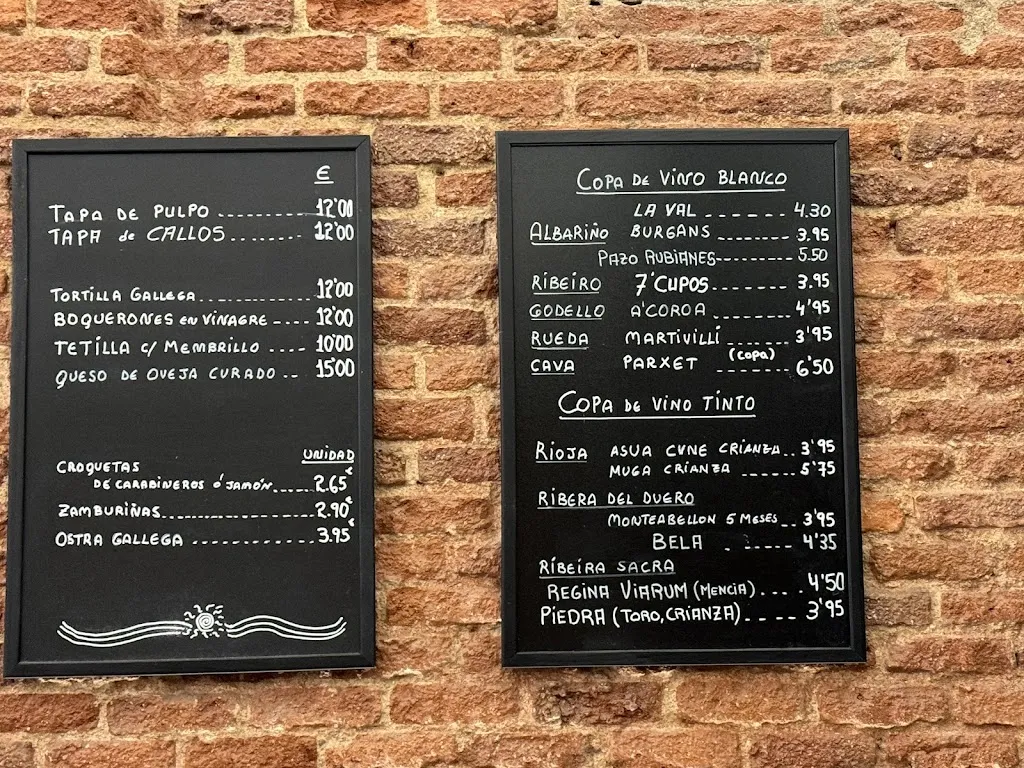 €
TAPA DE PULPO ........... 12'00
TAPA de CALLOS ........ 12'00
TORTILLA GALLEGA .............. 12'00
BOQUERONES en VINAGRE .... 12'00
TETILLA c/ MEMBRILLO .... 10'00
QUESO DE OVEJA CURADO .. 15'00
UNIDAD
CROQUETAS
DE CARABINEROS ó JAMÓN ...... 2.65€
ZAMBURIÑAS .................... 2.90€
OSTRA GALLEGA ............. 3.95€
COPA DE VINO BLANCO
LA VAL ....... 4.30
ALBARIÑO BURGANS ....... 3.95
PAZO RUBIANES ......... 5.50
RIBEIRO 7'CUPOS ........ 3.95
GODELLO A'COROA ......... 4'95
RUEDA MARTIVILLÍ ...... 3'95
CAVA PARXET (copa) ....... 6'50
COPA DE VINO TINTO
RIOJA ASUA CVNE CRIANZA .. 3'95
MUGA CRIANZA ...... 5'75
RIBERA DEL DUERO
MONTEABELLON 5 MESES .. 3'95
BELA . ..... 4'35
RIBEIRA SACRA
REGINA VIARUM (MENCIA) .... 4'50
PIEDRA (TORO, CRIANZA) .... 3'95